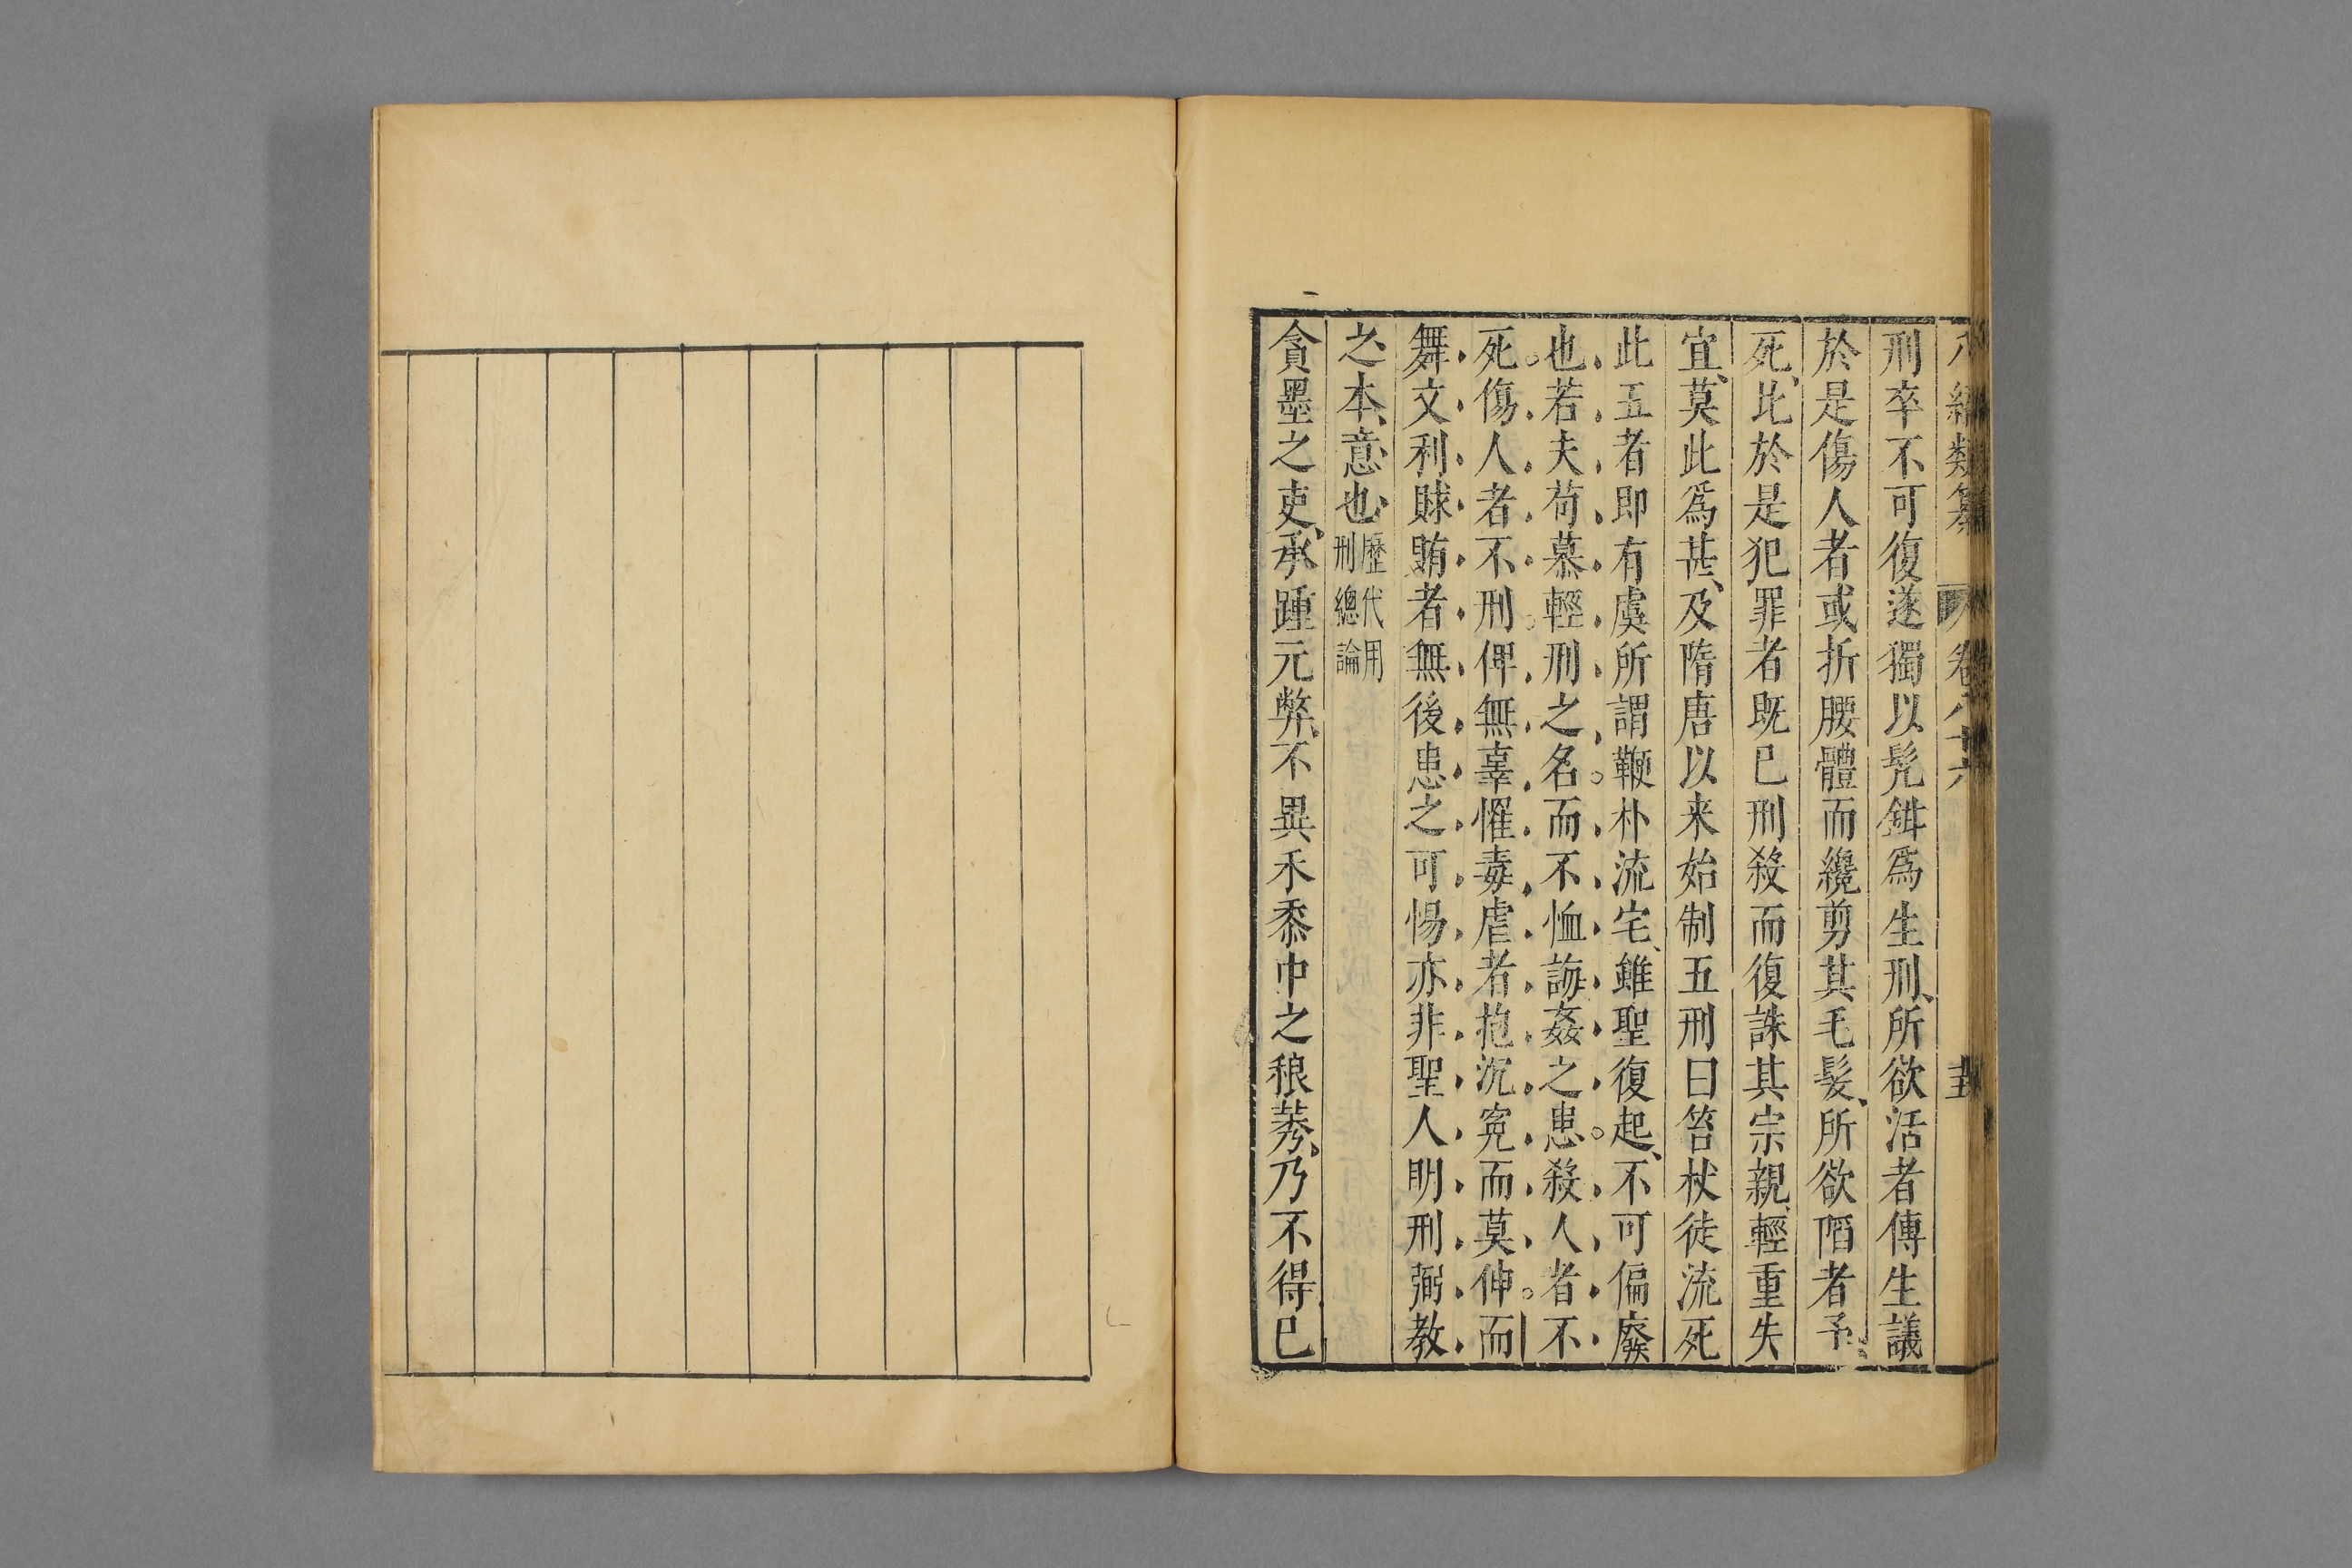 八編類纂 卷八十六
刑卒不可復遂獨以髡鉗爲生刑所欲活者傳生議
於是傷人者或折腰體而纔剪其毛髮所欲陷者予
死比於是犯罪者既已刑殺而復誅其宗親輕重失
宜莫此爲甚及隋唐以来始制五刑曰笞杖徒流死
此五者即有虞所謂鞭朴流宅雖聖復起不可偏廢
也若夫苟慕輕刑之名而不恤誨姦之患殺人者不
死傷人者不刑俾無辜罹毒虐者抱沉寃而莫伸而
舞文利賕賄者無後患之可惕亦非聖人明刑弼教
之本意也歷代用
刑總論
貪墨之吏承踵元弊不異禾黍中之稂莠乃不得已